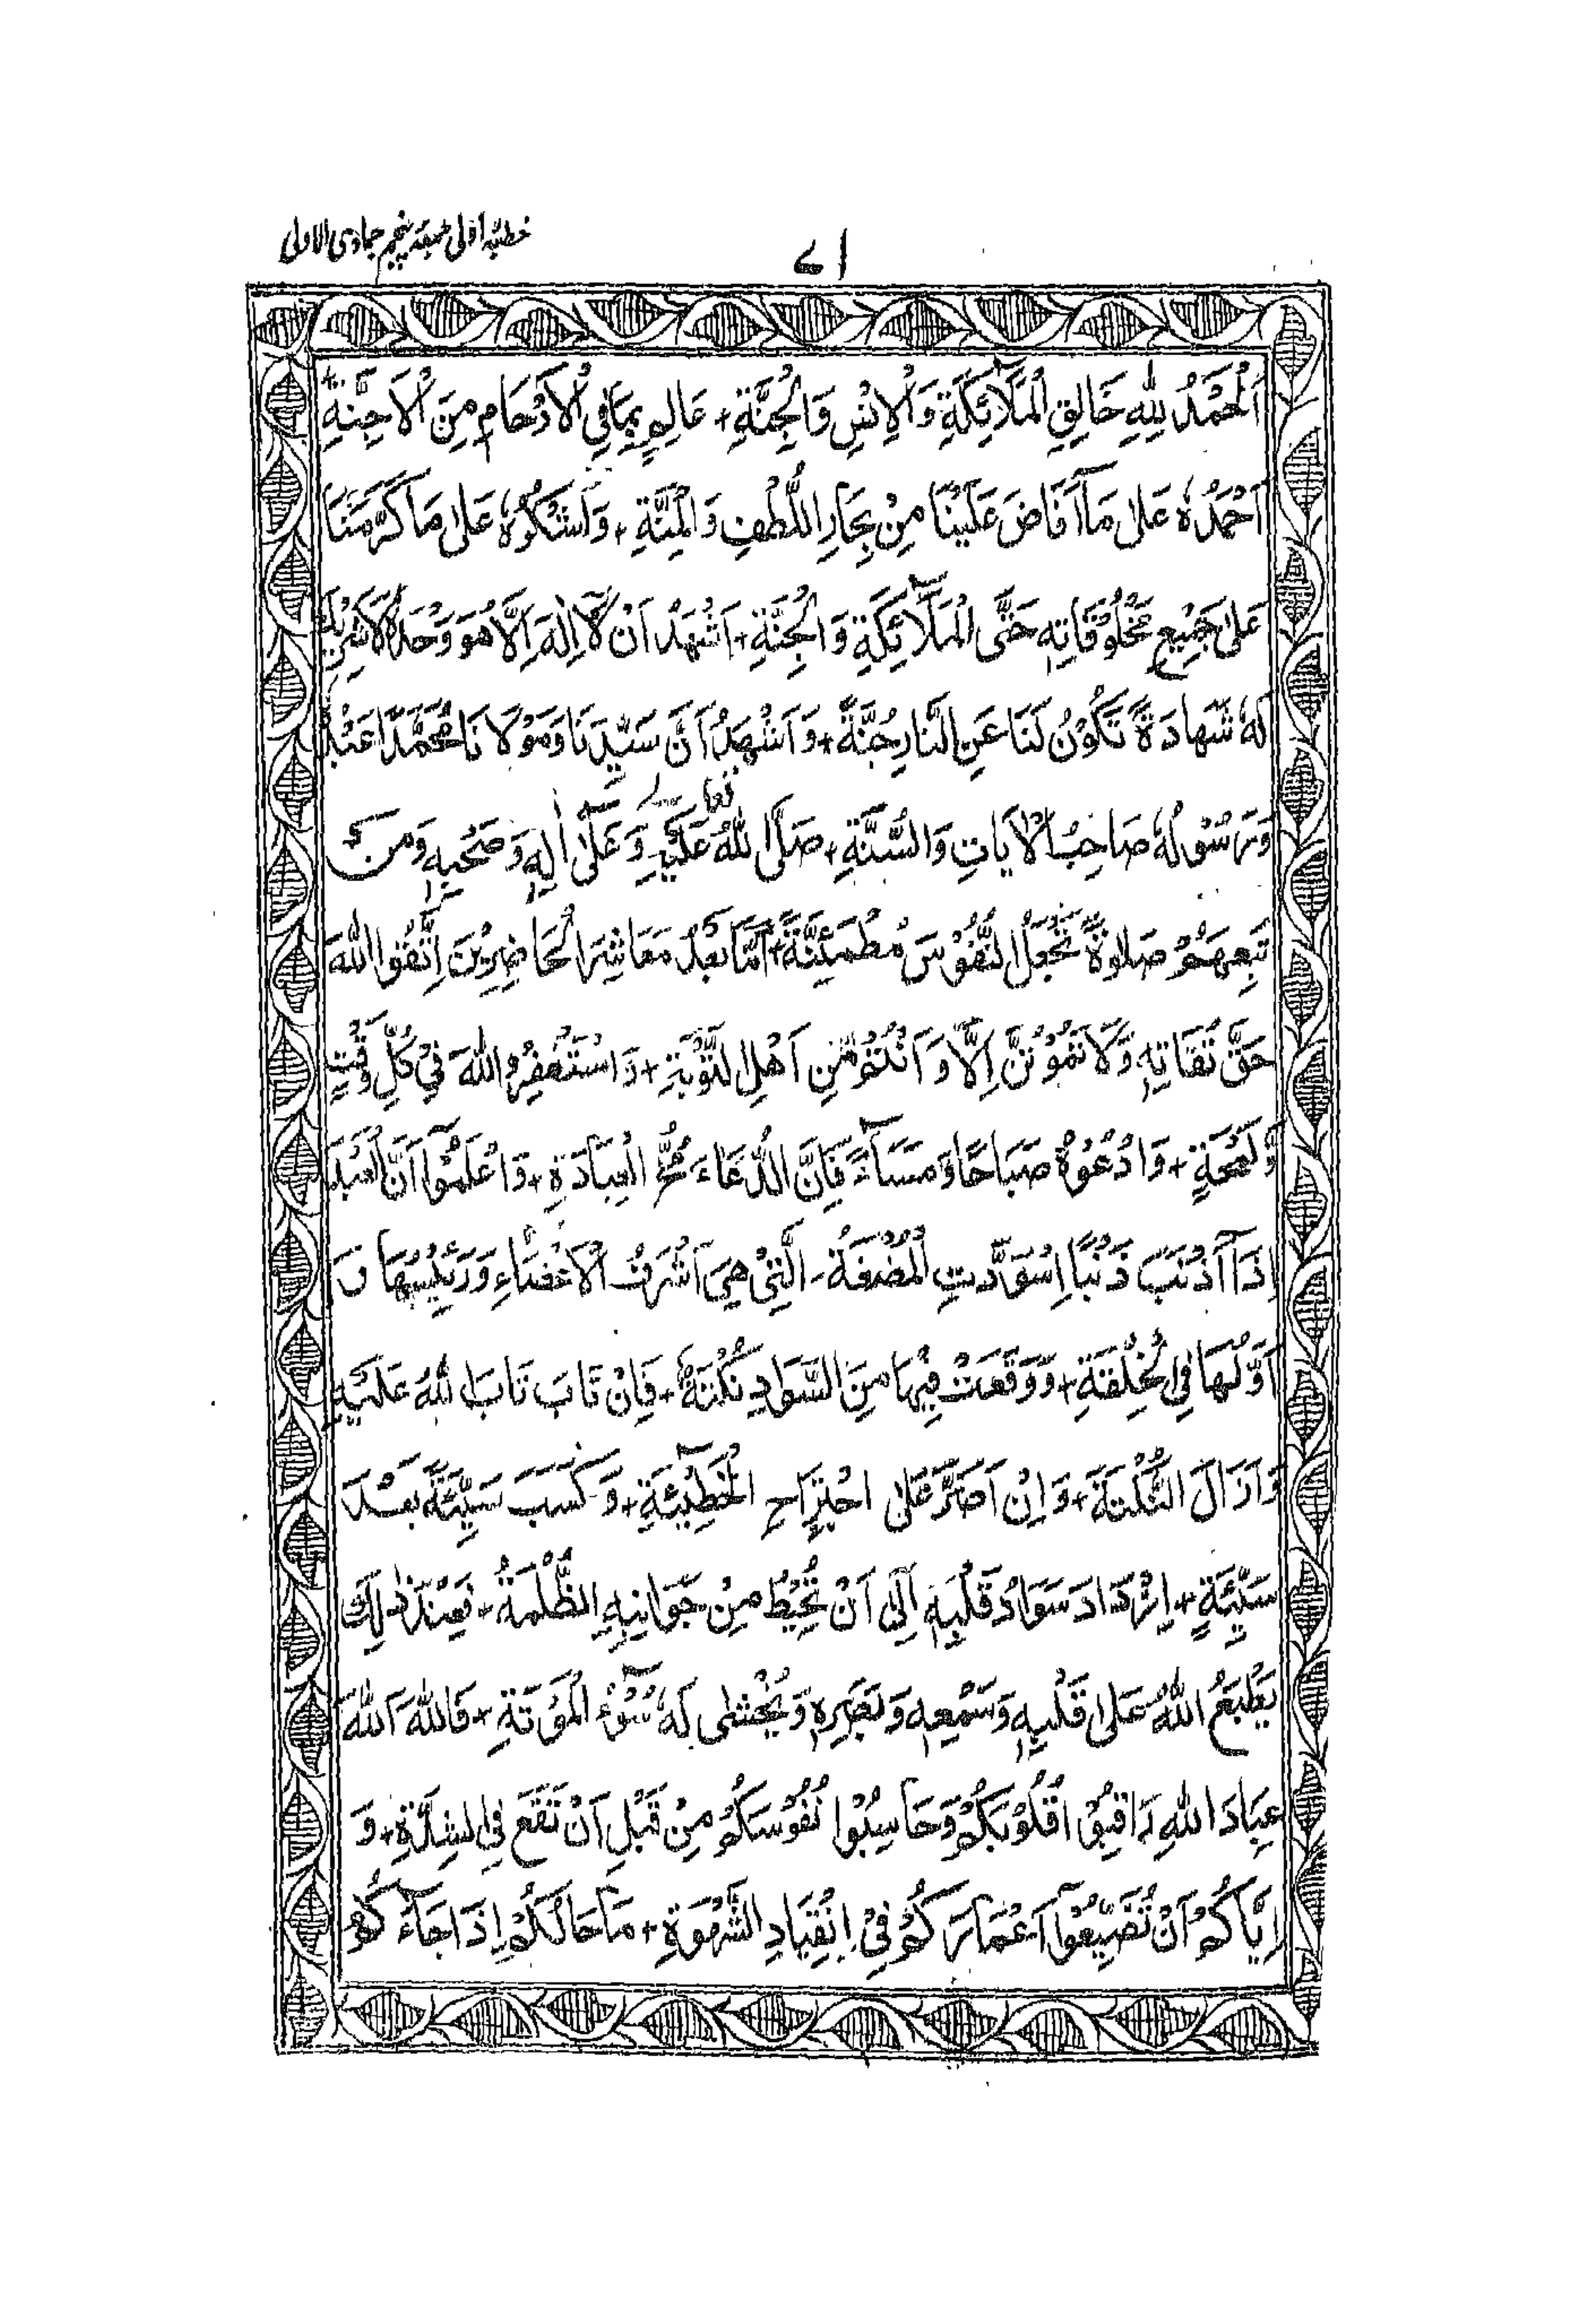 خطبۂ اولی جمعہ پنجم جمادی الاولی
۷۱
اَلْحَمْدُ لِلّٰهِ خَالِقِ الْمَلَآئِكَةِ وَالْاِنْسِ وَالْجِنَّةِ + عَالِمٍ بِمَا فِي الْاَرْحَامِ مِنَ الْاَجِنَّةِ +
اَحْمَدُهٗ عَلٰى مَآ اَفَاضَ عَلَيْنَا مِنْ بِحَارِ اللُّطْفِ وَالْمِنَّةِ + وَاَشْكُرُهٗ عَلٰى مَا كَرَّمَنَا
عَلٰى جَمِيْعِ مَخْلُوْقَاتِهٖ حَتَّى الْمَلَآئِكَةِ وَالْجِنَّةِ + اَشْهَدُ اَنْ لَّآ اِلٰهَ اِلَّا هُوَ وَحْدَهٗ لَا شَرِيْكَ
لَهٗ شَهَادَةً تَكُوْنُ لَنَا عَنِ النَّارِ جُنَّةً + وَاَشْهَدُ اَنَّ سَيِّدَنَا وَمَوْلَانَا مُحَمَّدًا عَبْدُهٗ
وَرَسُوْلُهٗ صَاحِبُ الْاٰيَاتِ وَالسُّنَّةِ + صَلَّى اللّٰهُ تعالے عَلَيْهِ وَعَلٰٓى اٰلِهٖ وَصَحْبِهٖ وَمَنْ
تَبِعَهُمْ صَلٰوةً تَجْعَلُ النُّفُوْسَ مُطْمَئِنَّةً + اَمَّا بَعْدُ مَعَاشِرَ الْحَاضِرِيْنَ اِتَّقُوا اللّٰهَ
حَقَّ تُقَاتِهٖ وَلَا تَمُوْتُنَّ اِلَّا وَاَنْتُمْ مِّنْ اَهْلِ التَّوْبَةِ + وَاسْتَغْفِرُوا اللّٰهَ فِيْ كُلِّ وَقْتٍ
وَّلَمْحَةٍ + وَادْعُوْهُ صَبَاحًا وَّمَسَآءً فَاِنَّ الدُّعَاءَ مُخُّ الْعِبَادَةِ + وَاعْلَمُوْٓا اَنَّ الْعَبْدَ
اِذَآ اَذْنَبَ ذَنْبًا اِسْوَدَّتِ الْمُضْغَةُ - الَّتِيْ هِيَ اَشْرَفُ الْاَعْضَاءِ وَرَئِيْسُهَا وَ
اَوَّلُهَا فِي الْخِلْقَةِ + وَوَقَعَتْ فِيْهَا مِنَ السَّوَادِ نُكْتَةٌ + فَاِنْ تَابَ تَابَ اللّٰهُ عَلَيْهِ
وَاَزَالَ النُّكْتَةَ + وَاِنْ اَصَرَّ عَلٰى اجْتِرَاحِ الْخَطِيْٓئَةِ + وَكَسَبَ سَيِّئَةً بَعْدَ
سَيِّئَةٍ + اِزْدَادَ سَوَادُ قَلْبِهٖ اِلٰٓى اَنْ تُحِيْطَ مِنْ جَوَانِبِهِ الظُّلْمَةُ + فَعِنْدَ ذٰلِكَ
يَطْبَعُ اللّٰهُ عَلٰى قَلْبِهٖ وَسَمْعِهٖ وَبَصَرِهٖ وَيُخْشٰى لَهٗ سُوْٓءُ الْمَوْتَةِ + فَاللّٰهَ اَللّٰهَ
عِبَادَ اللّٰهِ رَاقِبُوْا قُلُوْبَكُمْ وَحَاسِبُوْا نُفُوْسَكُمْ مِنْ قَبْلِ اَنْ تَقَعَ فِي الشِّدَّةِ + وَ
اِيَّاكُمْ اَنْ تُضَيِّعُوْٓا اَعْمَارَكُمْ فِيْ اِنْقِيَادِ الشَّهْوَةِ + مَا حَالُكُمْ اِذَا جَآءَكُمُ